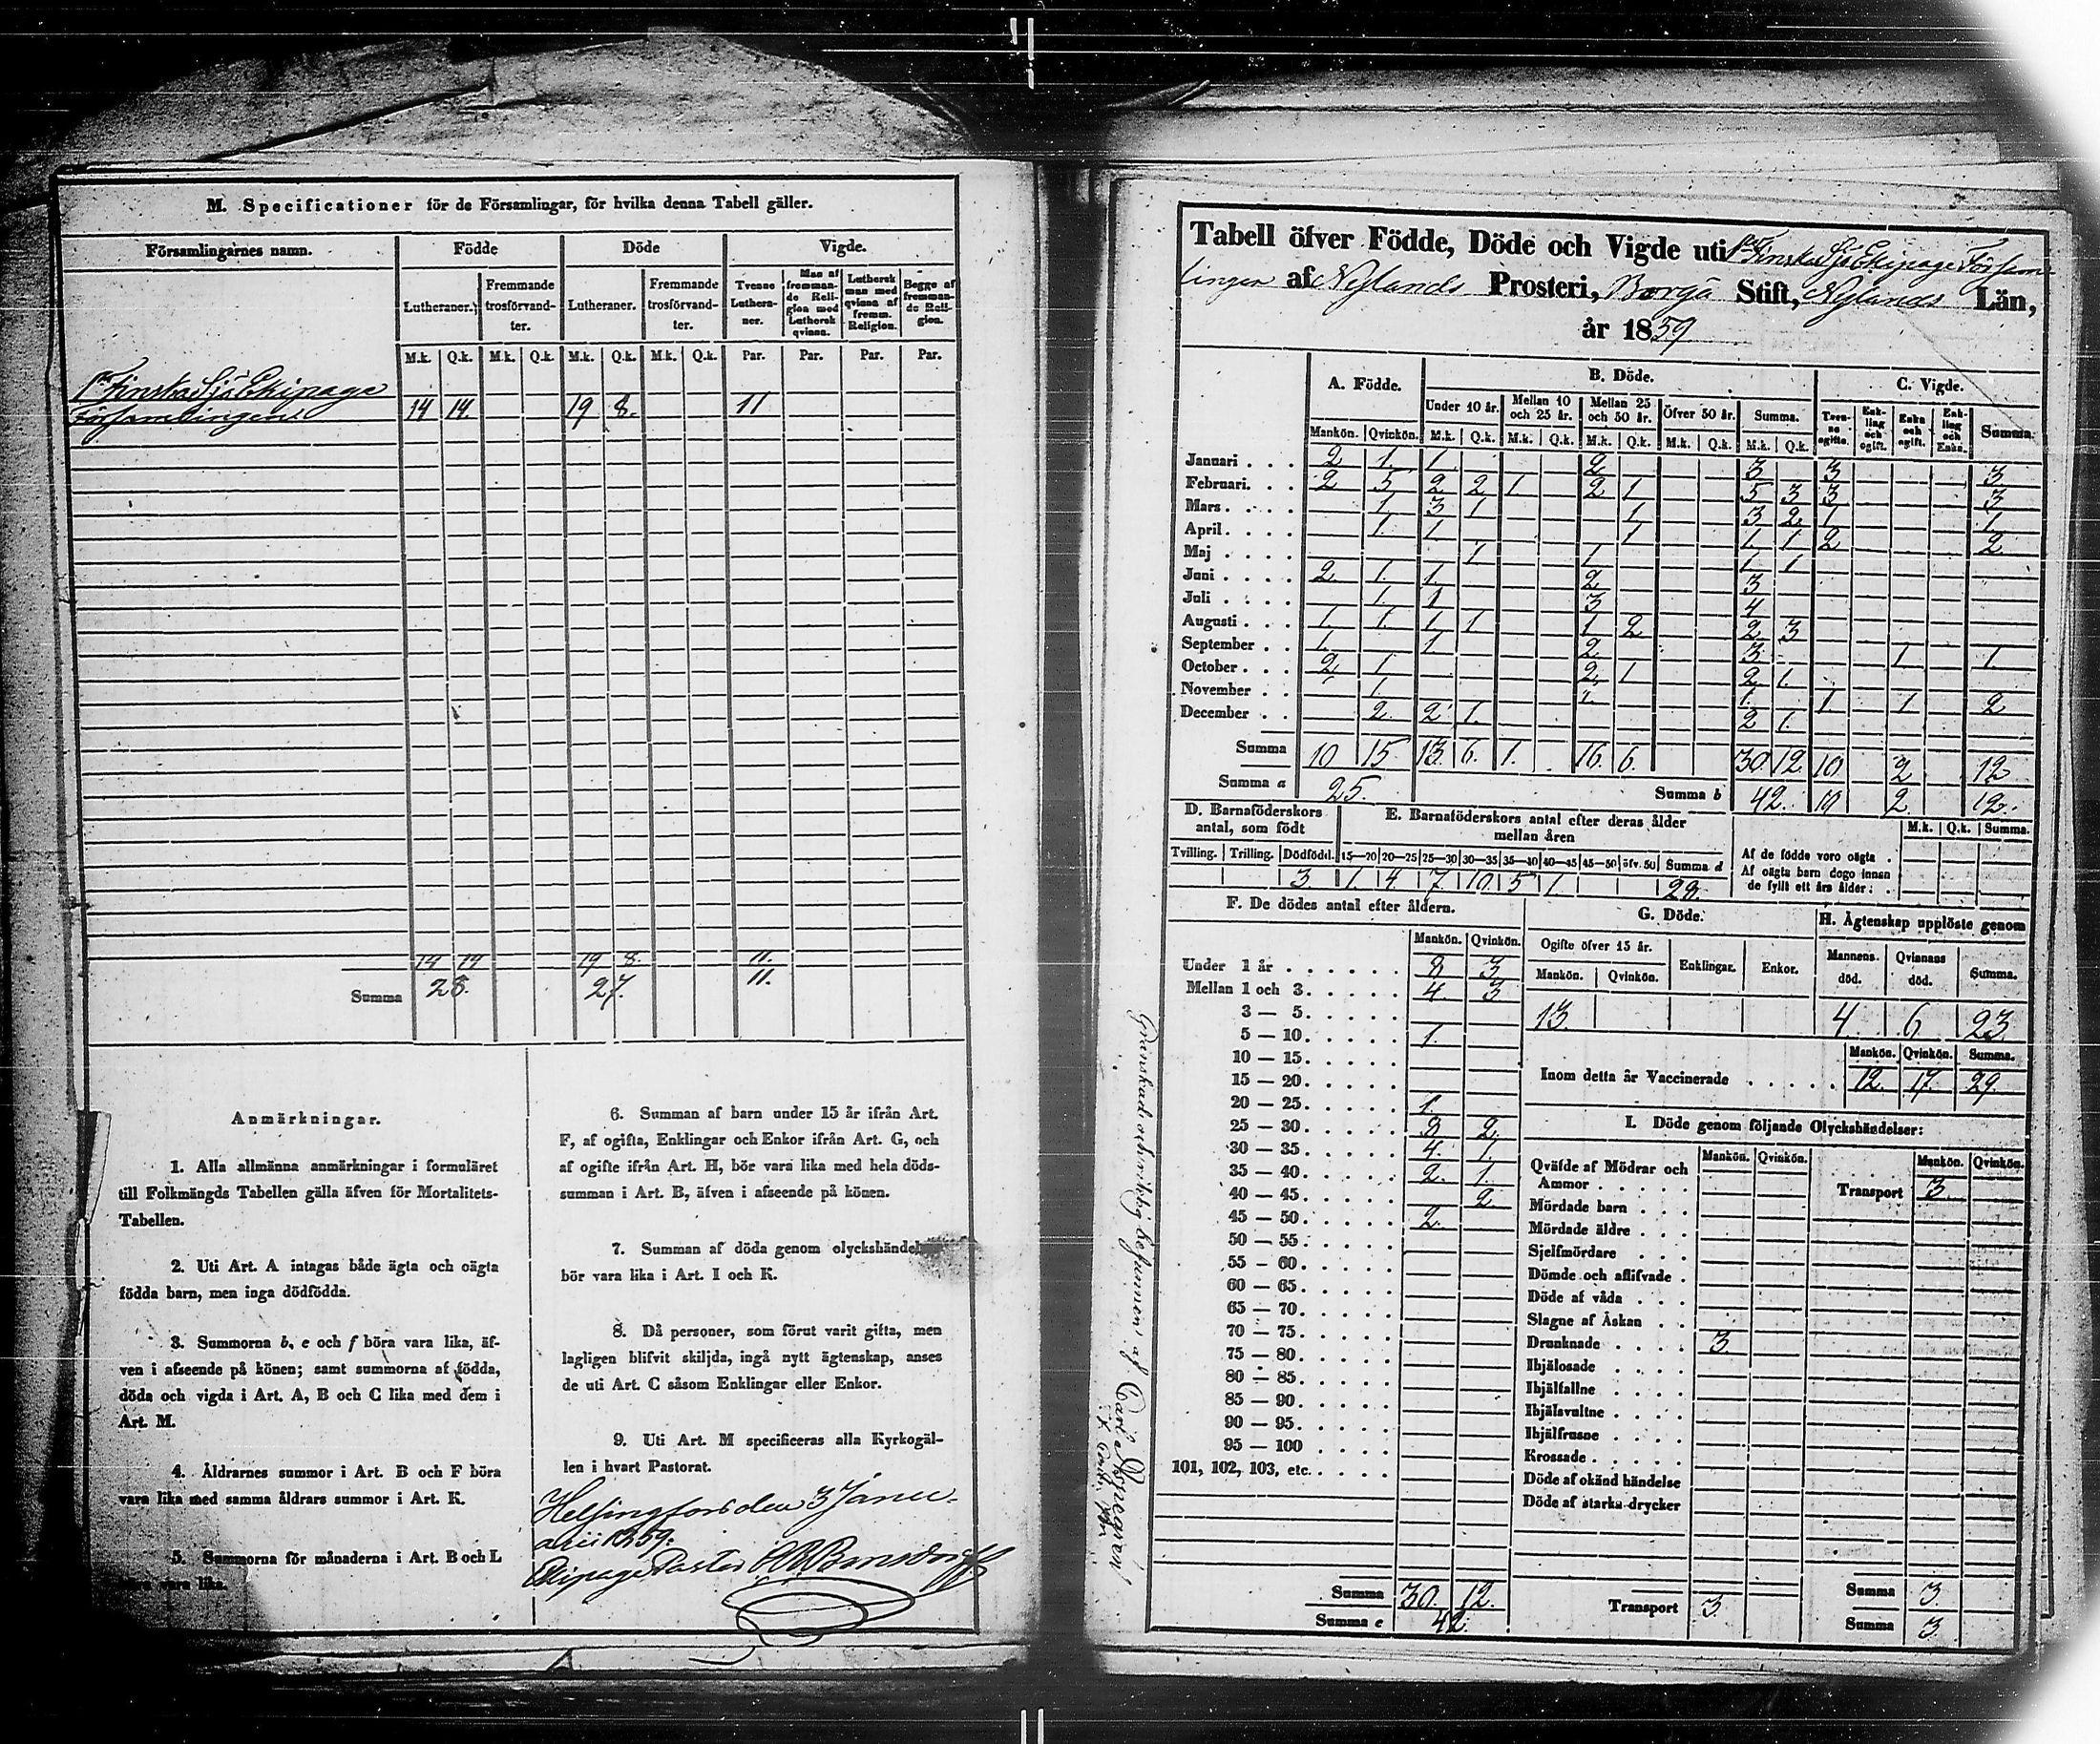 M. Specificationer för de Församlingar, för hvilka denna Tabell gäller.
Församlingarnes namn. Födde Döde Vigde.
Lutheraner. Fremmande trosförvandter. Lutheraner. Fremmande trosförvandter. Tvenne Lutheraner. Man af fremmande Religion med Luthersk qvinna. Luthersk man med qvinna af fremm. Religion. Begge af fremmande Religion.
M.k. Q.k. M.k. Q.k. M.k. Q.k. M.k. Q.k. Par. Par. Par. Par.
1sta Finska Sjö Ekipage
Församlingen 14 14 19 8. 11
14 14 19 8. 11.
Summa 28. 27. 11.
Anmärkningar.
1. Alla allmänna anmärkningar i formuläret
till Folkmängds Tabellen gälla äfven för Mortalitets-
Tabellen.
2. Uti Art. A intagas både ägta och oägta
födda barn, men inga dödfödda.
3. Summorna b, e och f böra vara lika, äf-
ven i afseende på könen; samt summorna af födda,
döda och vigda i Art. A, B och C lika med dem i
Art. M.
4. Åldrarnes summor i Art. B och F böra
vara lika med samma åldrars summor i Art. K.
5. Summorna för månaderna i Art. B och L
böra vara lika.
6. Summan af barn under 15 år ifrån Art.
F, af ogifta, Enklingar och Enkor ifrån Art. G, och
af ogifte ifrån Art. H, bör vara lika med hela döds-
summan i Art. B, äfven i afseende på könen.
7. Summan af döda genom olyckshändelser
bör vara lika i Art. I och K.
8. Då personer, som förut varit gifta, men
lagligen blifvit skiljda, ingå nytt ägtenskap, anses
de uti Art. C såsom Enklingar eller Enkor.
9. Uti Art. M specificeras alla Kyrkogäl-
len i hvart Pastorat.
Helsingfors den 3 Janu-
arii 1859.
Ekipage Pastor
Tabell öfver Födde, Döde och Vigde uti 1sta Finska Sjö Ekipage Försam
lingen af Nylands Prosteri, Borgå Stift, Nylands Län,
år 1859
A. Födde. B. Döde. C. Vigde.
Under 10 år. Mellan 10 och 25 år. Mellan 25 och 50 år. Öfver 50 år. Summa. Tvenne ogifte. Enkling och ogift. Enka och ogift. Enkling och Enka. Summa.
Mankön. Qvinkön. M.k. Q.k. M.k. Q.k. M.k. Q.k. M.k. Q.k. M.k. Q.k.
Januari . . . 2 1. 1. 2 3 3 3
Februari. . . 2 5 2 2 1. 2 1 5 3 3 3
Mars . . . . 1 3 1 1 3 2. 1 1
April . . . . 1. 1 1 1 1 2 2
Maj . . . . 1 1 1 1
Juni . . . . 2 1. 1. 2 3
Juli . . . . 1. 1 3 4
Augusti . . . 1. 1. 1 1 1 2 2 3
September . . 1. 1 2 3 1 1.
October . . . 2 1 2 1 2 1.
November . . 1. 1. 1. 1 1 2
December . . 2. 2 1. 2 1.
Summa 10 15 13. 6. 1. 16. 6. 30 12. 10 2 12
Summa a 25. Summa b 42. 10 2 12.
D. Barnaföderskors antal, som födt
E. Barnaföderskors antal efter deras ålder mellan åren
M.k. Q.k. Summa.
Tvilling. Trilling. Dödfödd. 15—20 20—25 25—30 30—35 35—40 40—45 45—50 öfv. 50 Summa d
3 1. 4. 7. 10. 5 1. 28.
Af de födde voro oägta .
Af oägta barn dogo innan
de fyllt ett års ålder: .
F. De dödes antal efter åldern.
Mankön. Qvinkön.
Under 1 år . . . . . . 8 3
Mellan 1 och 3. . . . . 4. 3
3 — 5. . . . .
5 — 10. . . . . 1.
10 — 15. . . . .
15 — 20. . . . .
20 — 25. . . . . 1.
25 — 30. . . . . 8 2.
30 — 35. . . . . 4. 1.
35 — 40. . . . . 2. 1.
40 — 45. . . . . 2.
45 — 50. . . . . 2.
50 — 55. . . . .
55 — 60. . . . .
60 — 65. . . . .
65 — 70. . . . .
70 — 75. . . . .
75 — 80. . . . .
80 — 85. . . . .
85 — 90. . . . .
90 — 95. . . . .
95 — 100 . . . .
101, 102, 103, etc. . . . .
Summa 30. 12.
Summa e 42.
G. Döde.
Ogifte öfver 15 år. Enklingar. Enkor.
Mankön. Qvinkön.
13
H. Ägtenskap upplöste genom
Mannens död. Qvinnans död. Summa.
4 6 23
Mankön. Qvinkön. Summa.
Inom detta år Vaccinerade . . . . . 12. 17. 29.
I. Döde genom följande Olyckshändelser:
Mankön. Qvinkön. Mankön. Qvinkön.
Qväfde af Mödrar och
Ammor . . . . . Transport 3.
Mördade barn . . .
Mördade äldre . . .
Sjelfmördare . . .
Dömde och aflifvade .
Döde af våda . . .
Slagne af Åskan . .
Drunknade . . . . 3
Ihjälosade . . . .
Ihjälfallne . . . .
Ihjälsvultne . . . .
Ihjälfrusne . . . .
Krossade . . . . .
Döde af okänd händelse
Döde af starka drycker
Transport 3.
Summa 3.
Summa 3.
Granskad och riktig befunnen; af Carl